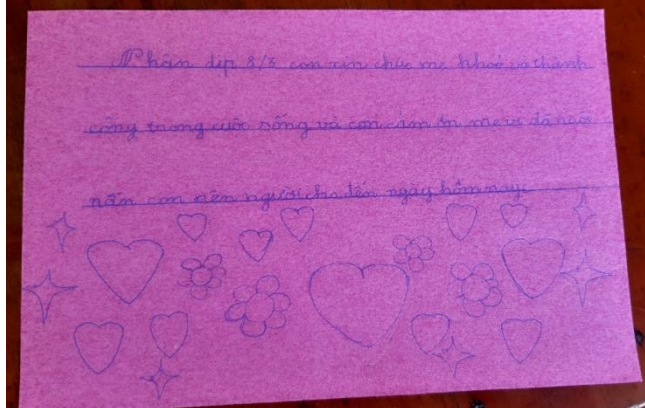 Nhân dịp 8/3 con xin chúc mẹ khoẻ và thành
công trong cuộc sống và con cảm ơn mẹ vì đã nào
nấn con nên người cho đến ngày hôm nay.